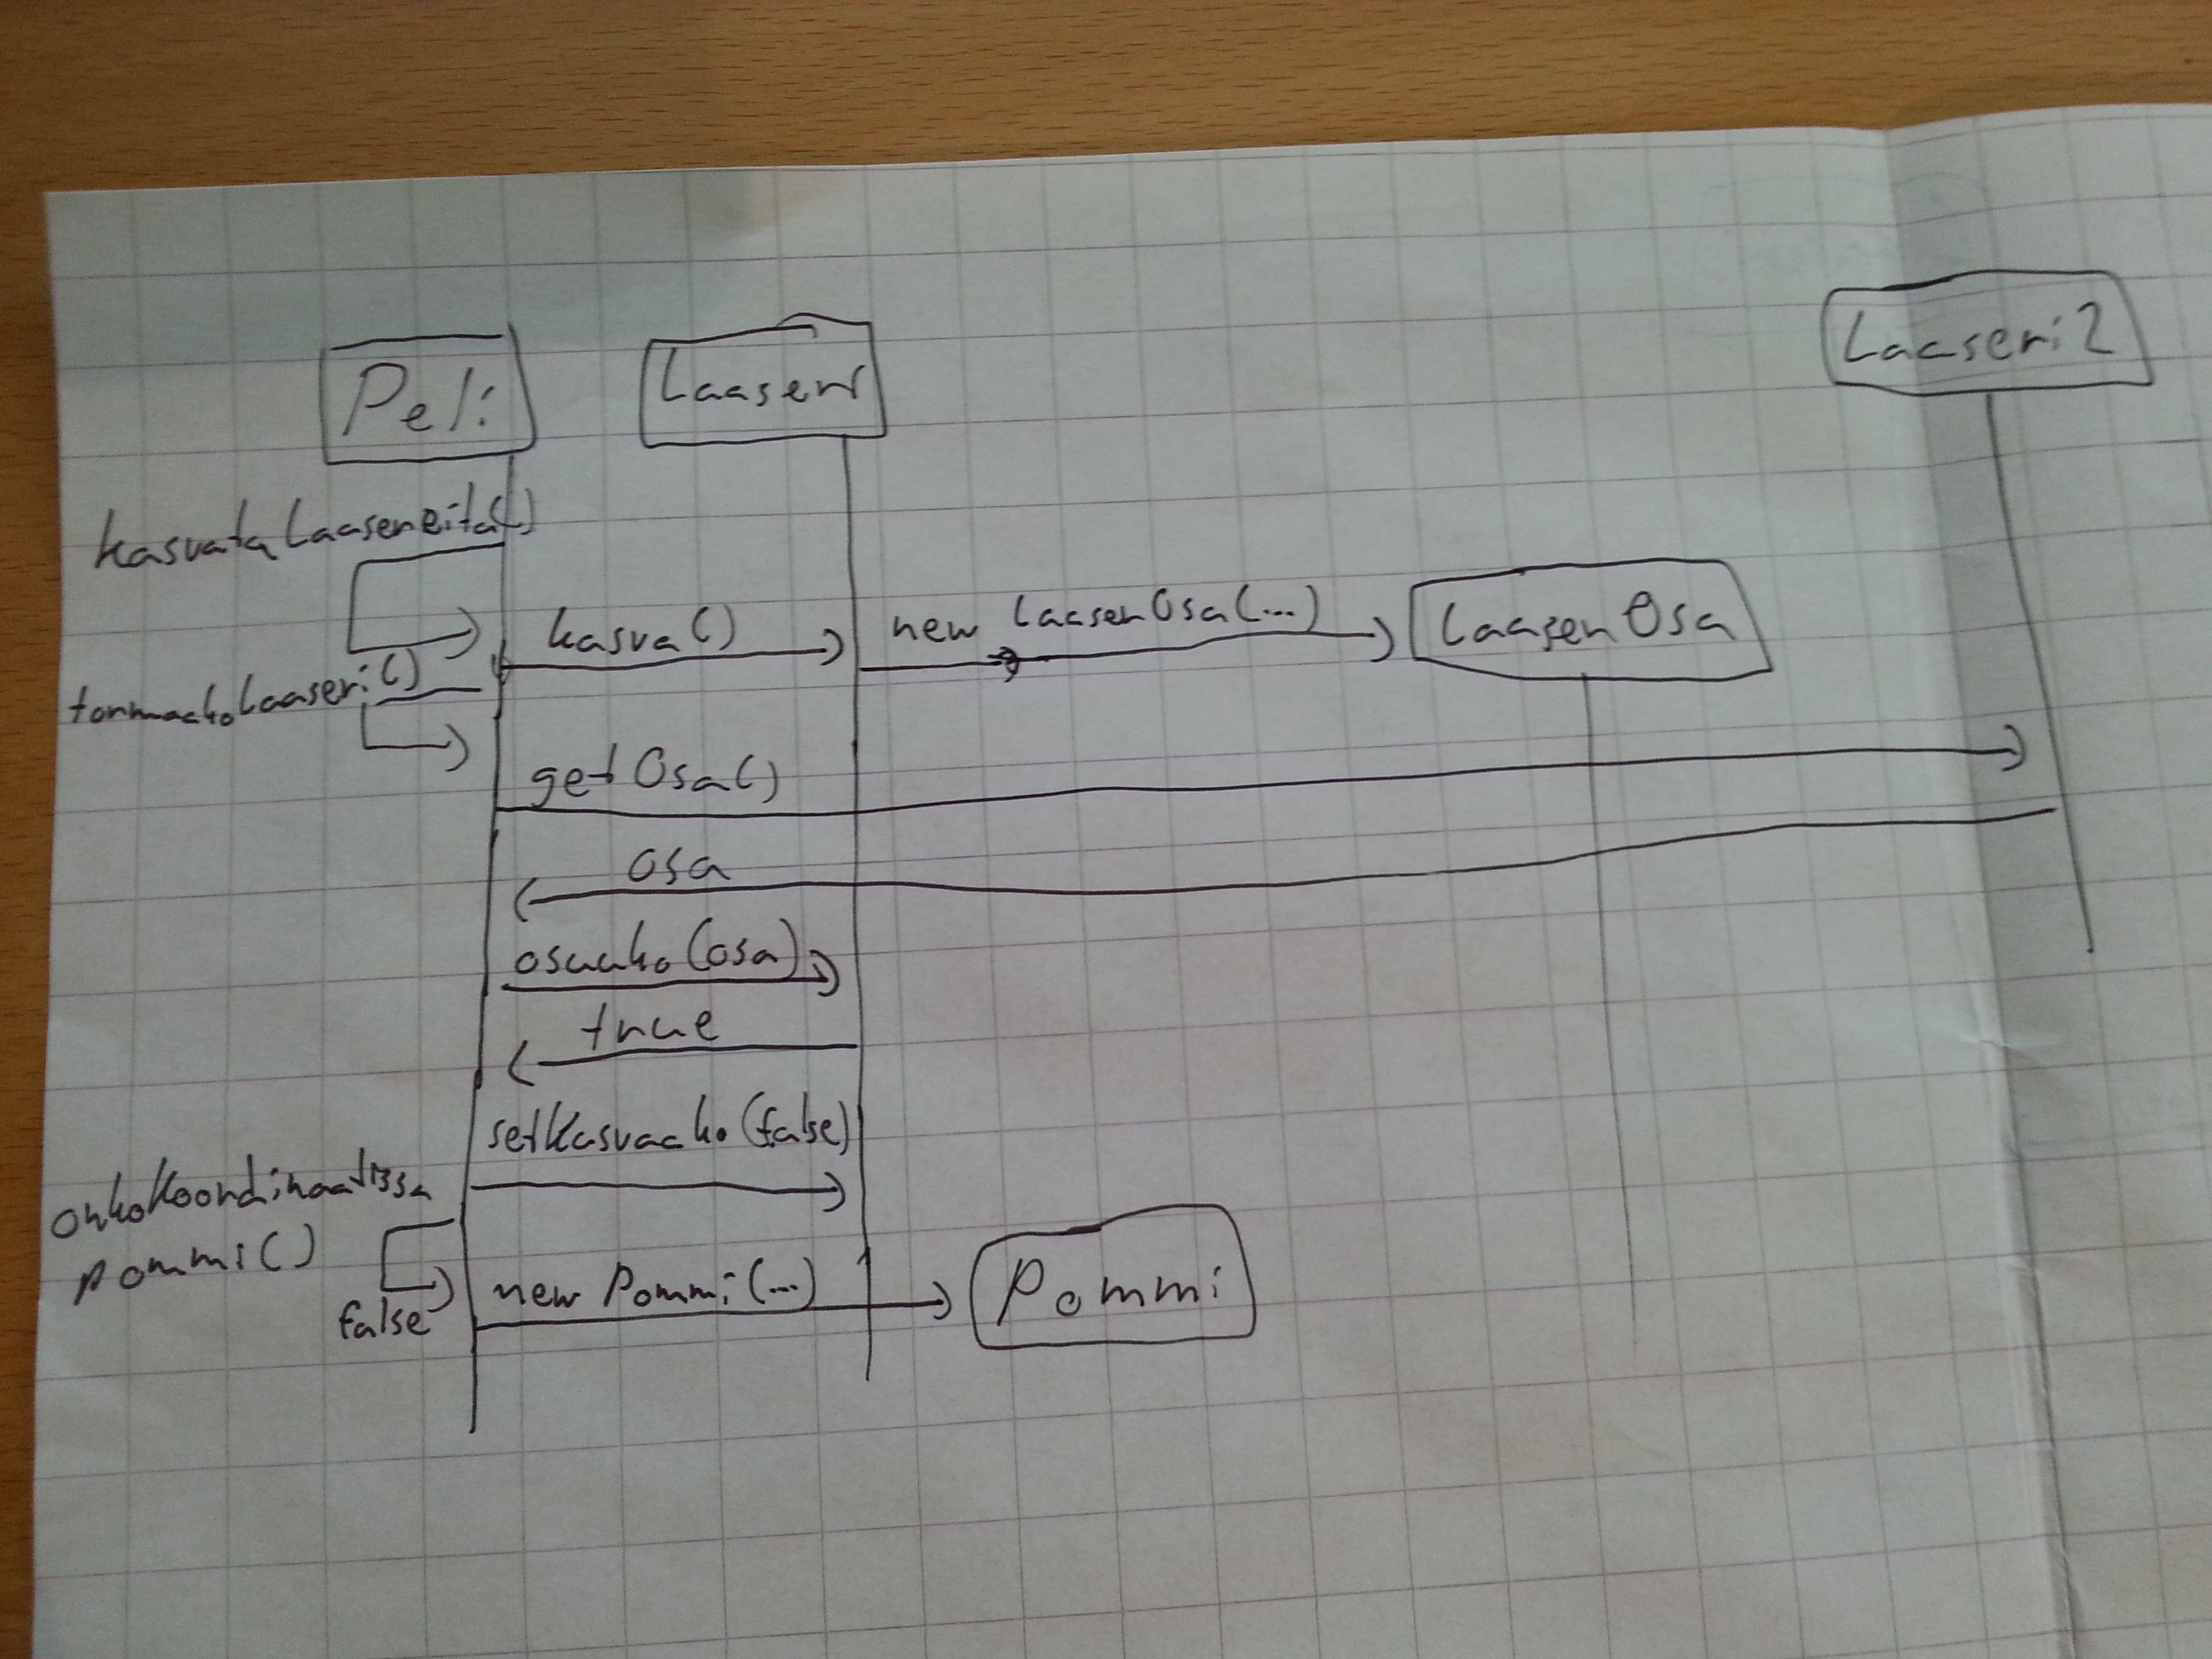 Peli
Laaseri
Laaseri2
kasvataLaasereita()
kasva()
new LaaserOsa(...)
LaaserOsa
tormaakoLaaseri()
getOsa()
osa
osuuko(osa)
true
setKasvaako(false)
onkoKoordinaatissa
pommi()
false
new Pommi(...)
Pommi